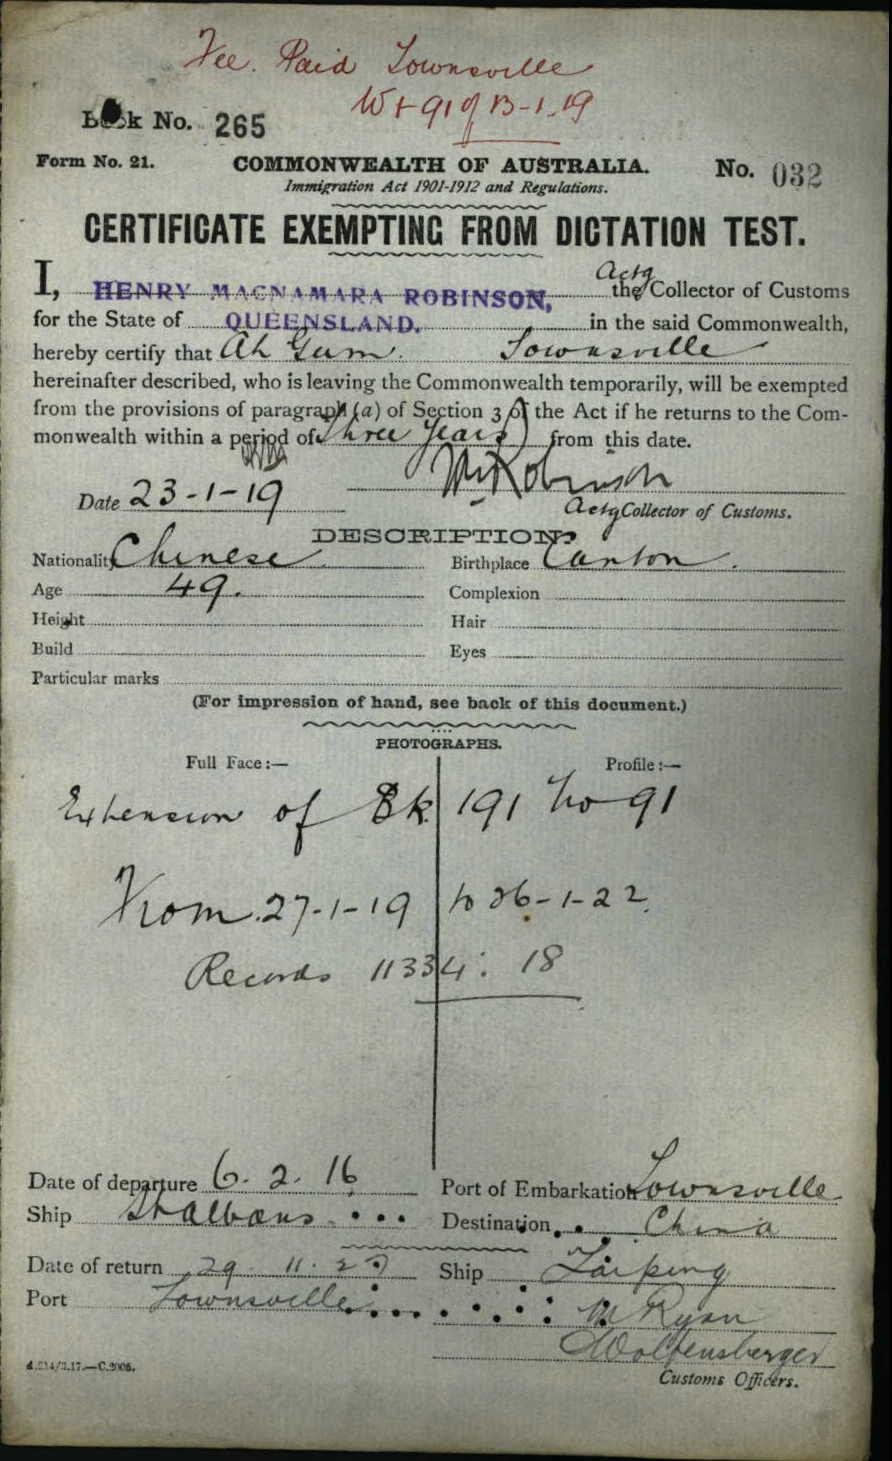 Fee. Paid Townsville
W + 91 of 13-1-19
Book No. 265
Form No. 21.
COMMONWEALTH OF AUSTRALIA.
No. 032
Immigration Act 1901-1912 and Regulations.
CERTIFICATE EXEMPTING FROM DICTATION TEST.
I, HENRY MACNAMARA ROBINSON, Actg the Collector of Customs
for the State of QUEENSLAND. in the said Commonwealth,
hereby certify that Ah Gum. Townsville
hereinafter described, who is leaving the Commonwealth temporarily, will be exempted
from the provisions of paragraph (a) of Section 3 of the Act if he returns to the Com-
monwealth within a period of Three Years from this date.
Robinson
Date 23-1-19
Actg Collector of Customs.
DESCRIPTION.
Nationality Chinese Birthplace Canton.
Age 49. Complexion
Height Hair
Build Eyes
Particular marks
(For impression of hand, see back of this document.)
PHOTOGRAPHS.
Full Face:— Profile:—
Extension of Bk 191 No 91
From 27-1-19 to 26-1-22.
Records 11334: 18
Date of departure 6. 2. 16 Port of Embarkation Townsville
Ship St Albans Destination China
Date of return 29. 11. 2 Ship Taiping
Port Townsville
M Ryan
Wolfensberger
Customs Officers.